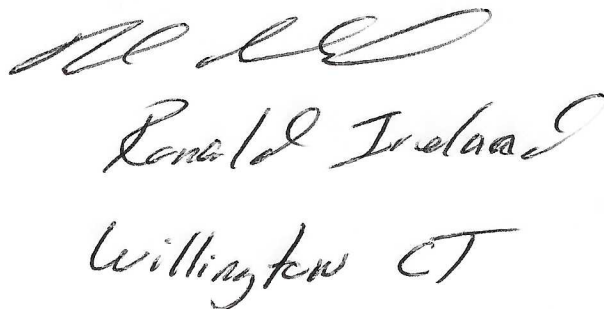 Ronald Ireland
Willington CT